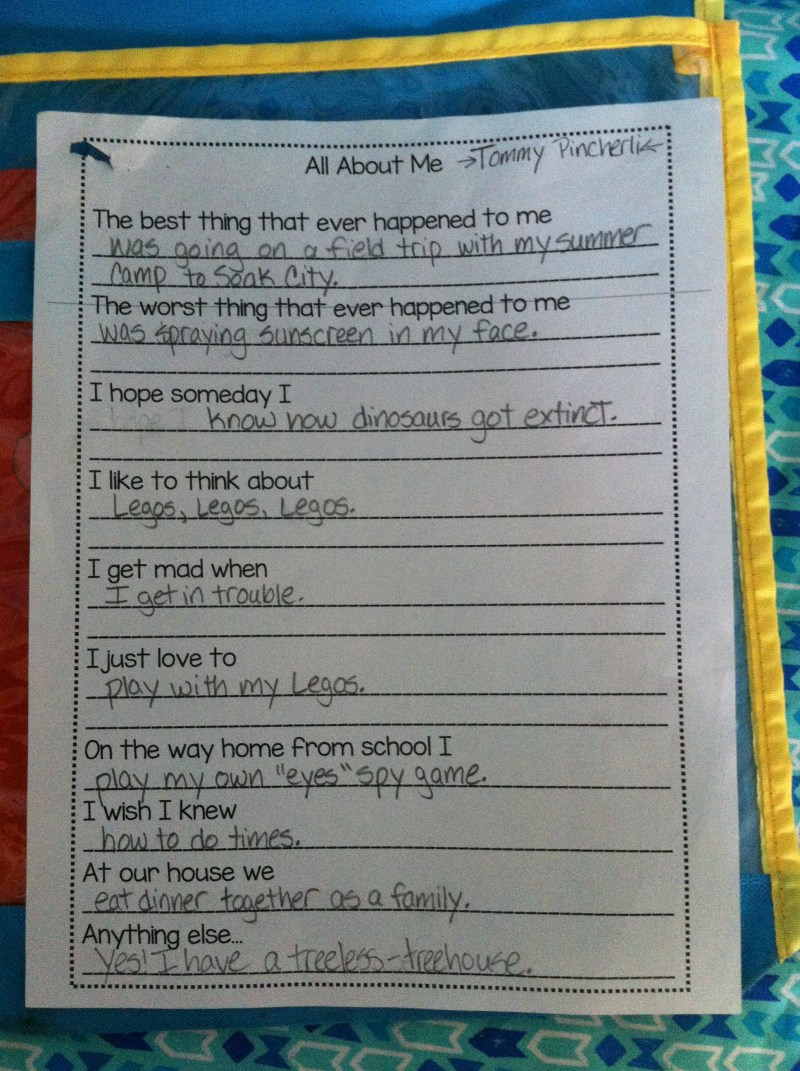 All About Me →Tommy Pincherli←
The best thing that ever happened to me
was going on a field trip with my summer
Camp to Soak City.
The worst thing that ever happened to me
was spraying sunscreen in my face.
I hope someday I
hope I know how dinosaurs got extinct.
I like to think about
Legos, Legos, Legos.
I get mad when
I get in trouble.
I just love to
play with my Legos.
On the way home from school I
play my own "eyes" spy game.
I wish I knew
how to do times.
At our house we
eat dinner together as a family.
Anything else...
Yes! I have a treeless-treehouse.